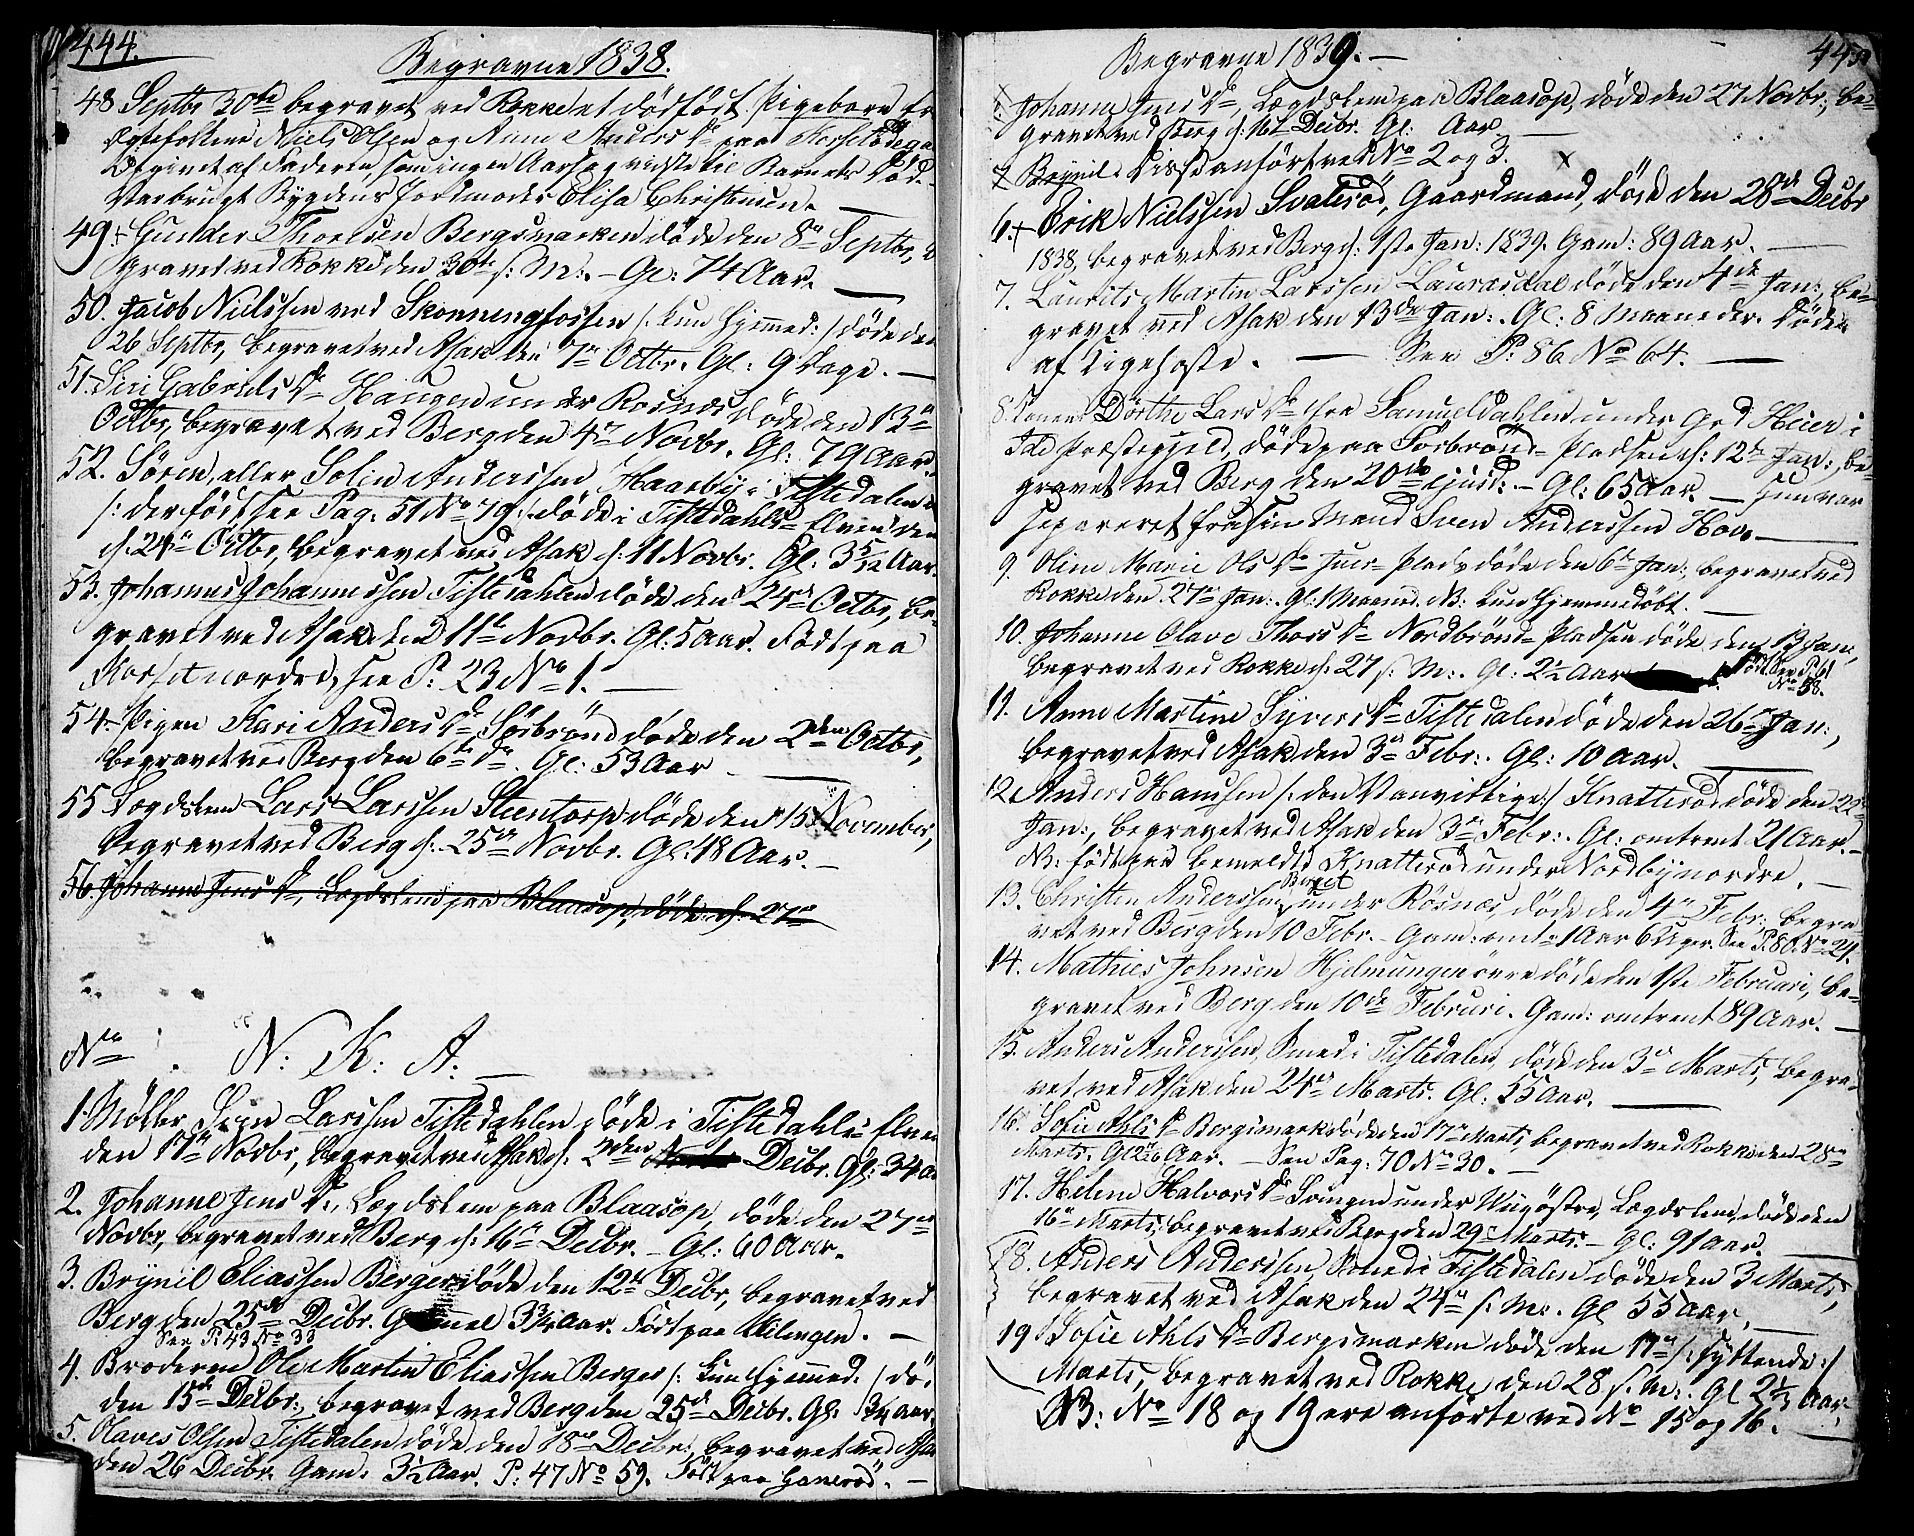 444.
Begravne 1838.
48 Septbr 30te begravet ved Rokke et dödfödt Pigebarn af
Egtefolkene Niels Olsen og Anne Anders Dr paa
Opgivet af Faderen, som ingen Aarsag vidste til Barnets Död.
Var brugt Bygdens Jordmoder Elisa Christensen.
49 + Gunder Thorsen Bergsmarken döde den 8de Septbr, be
gravet ved Rokke den 30te s: M:. - Gl: 74 Aar.
50. Jacob Nielssen ved Skonningfossen /: kun hjemmed: / döde den
26 Septbr, begravet ved Asak den 7de Octbr. Gl: 9 Dage. -
51. Siri Gabriels Dr Haugen under Rosnes döde den 13de
Octbr, begravet ved Berg den 4de Novbr. Gl: 79 Aar.
52. Sören, eller Solin Anderssen Haarby i Tistedalen
/: der födt see Pag: 51 No 79 :/ döde i Tistedahls-Elven den
d: 24de Octbr, begravet ved Asak d: 11 Novbr. Gl: 3 5/12 Aar.
53. Johannes Johannessen Tistedahlen döde den 24de Octbr, be-
gravet ved Asak den 11te Novbr. Gl: 5 Aar. Födt paa
nordre, see P: 23 No 1. -
54. Pigen Kari Anders Dr Sörbrönd döde den 2den Octbr,
begravet ved Berg den 6te Dr. Gl: 53 Aar -
55 Lægdslem Lars Larssen Steentorp döde den 15 November,
begravet ved Berg d: 25de Novbr. Gl: 18 Aar. -
56. Johanne Jens Dr, Lægdslem paa Blaasop, döde d: 27de
No N: K: A: -
1. Möller Larssen Tistedahlen döde i Tistedahls-Elven
den 17de Novbr, begravet ved Asak d: 2den Decbr. Gl: 34 Aar
2. Johanne Jens Dr, Lægdslem paa Blaasop, döde den 27de
Novbr, begravet ved Berg d: 16de Decbr. - Gl: 60 Aar.
3. Brynil Eliassen Berger döde den 12te Decbr, begravet ved
Berg den 25de Decbr. Gammel 3 3/4 Aar. Födt paa
See P: 43 No 33
4. Broderen Ole Martin Eliassen Berger /: kun hjemmed: / dö:
den 15de Decbr, begravet ved Berg den 25de Decbr. Gl: 3/4 Aar.
5. Olaves Olsen Tistedalen döde den 18de Decbr, begravet ved Asak
den 26 Decbr. Gam: 3 1/2 Aar. P: 47 No 59. Födt paa -
Begravne 1839. -
445
1. Johanne Jens Dr, Lægdslem paa Blaasop, döde den 27 Novbr, be-
gravet ved Berg d: 16 Decbr. Gl: Aar. -
2 Brynil anfört ved No 2 og 3. x
6. + Erik Nielssen Svaleröd, Gaardmand, döde den 28de Decbr
1838, begravet ved Berg d: 1ste Jan: 1839. Gam: 89 Aar. -
7. Laurits Martin Larssen Laurasdal döde den 4de Jan: be-
gravet ved Asak den 13de Jan:. Gl: 8 Maaneder. Döde
af Kigehoste. - See P: 86 No 64. -
8. Konen Dörthe Lars Dr fra Samueldahlen under Grd Heier i
Id Præstegjeld, döde paa Sörbrönd-Pladsen d: 12te Jan:, be-
gravet ved Berg den 20de ejusd: - Gl: 65 Aar. - Hun var
separeret fra sin Mand Sven Anderssen Hov. -
9. Oline Marie Ols Dr döde den 6te Jan:, begravet ved
Rokke den 27de Jan:. Gl: 1 Maaned. NB: kun hjemmedöbt. -
10. Johanne Olave Thors Dr Nordbrönd-Pladsen döde den 13 Jan:,
begravet ved Rokke d: 27 s: M:. Gl: 2 1/2 Aar Födt. See P. 61
No 58.
11. Anne Martine Syvers Dr Tistedalen döde den 26de Jan:,
begravet ved Asak den 3de Febr:. Gl: 10 Aar. -
12. Anders Hanssen /: den Vanvittige :/ Knatteröd döde den 22de
Jan:, begravet ved Asak den 3de Febr:. Gl: omtrent 21 Aar. -
NB: födt paa bemeldte Knatteröd under Nordby nordre. -
13. Christen Anderssen Berget under Rösnes, döde den 4de Febr: begra
vet ved Berg den 10 Febr. - Gam: omtr 1 Aar 6 Uger. See P. 80. No 24.
14. Mathies Johnsen Hjelmungen övre döde den 1ste Februari, be-
gravet ved Berg den 10de Februari. Gam: omtrent 89 Aar. -
15. Anders Anderssen, Smed i Tistedalen, döde den 3de Marts, begra-
vet ved Asak den 24de Marts. Gl: 55 Aar. -
16. Sofie Ahls Dr Bergsmark döde den 17de Marts, begravet ved Rokke den 28de
Marts. Gl: Aar. - See Pag: 70 No 30. -
17. Helene Halvors Dr Svingen under östre, Lægdslem, döde den
16de Marts, begravet ved Berg den 29de Marts. - Gl: 91 Aar. -
18. Anders Anderssen Smed i Tistedalen döde den 3 Marts,
begravet ved Asak den 24de s: M:. Gl 55 Aar. -
19 Sofie Ahls Dr Bergsmarken döde den 17de /: syttende :/
Marts, begravet ved Rokke den 28 s: M:. Gl 2 1/2 Aar.
NB: No 18 og 19 ere anförte ved No 15 og 16. -